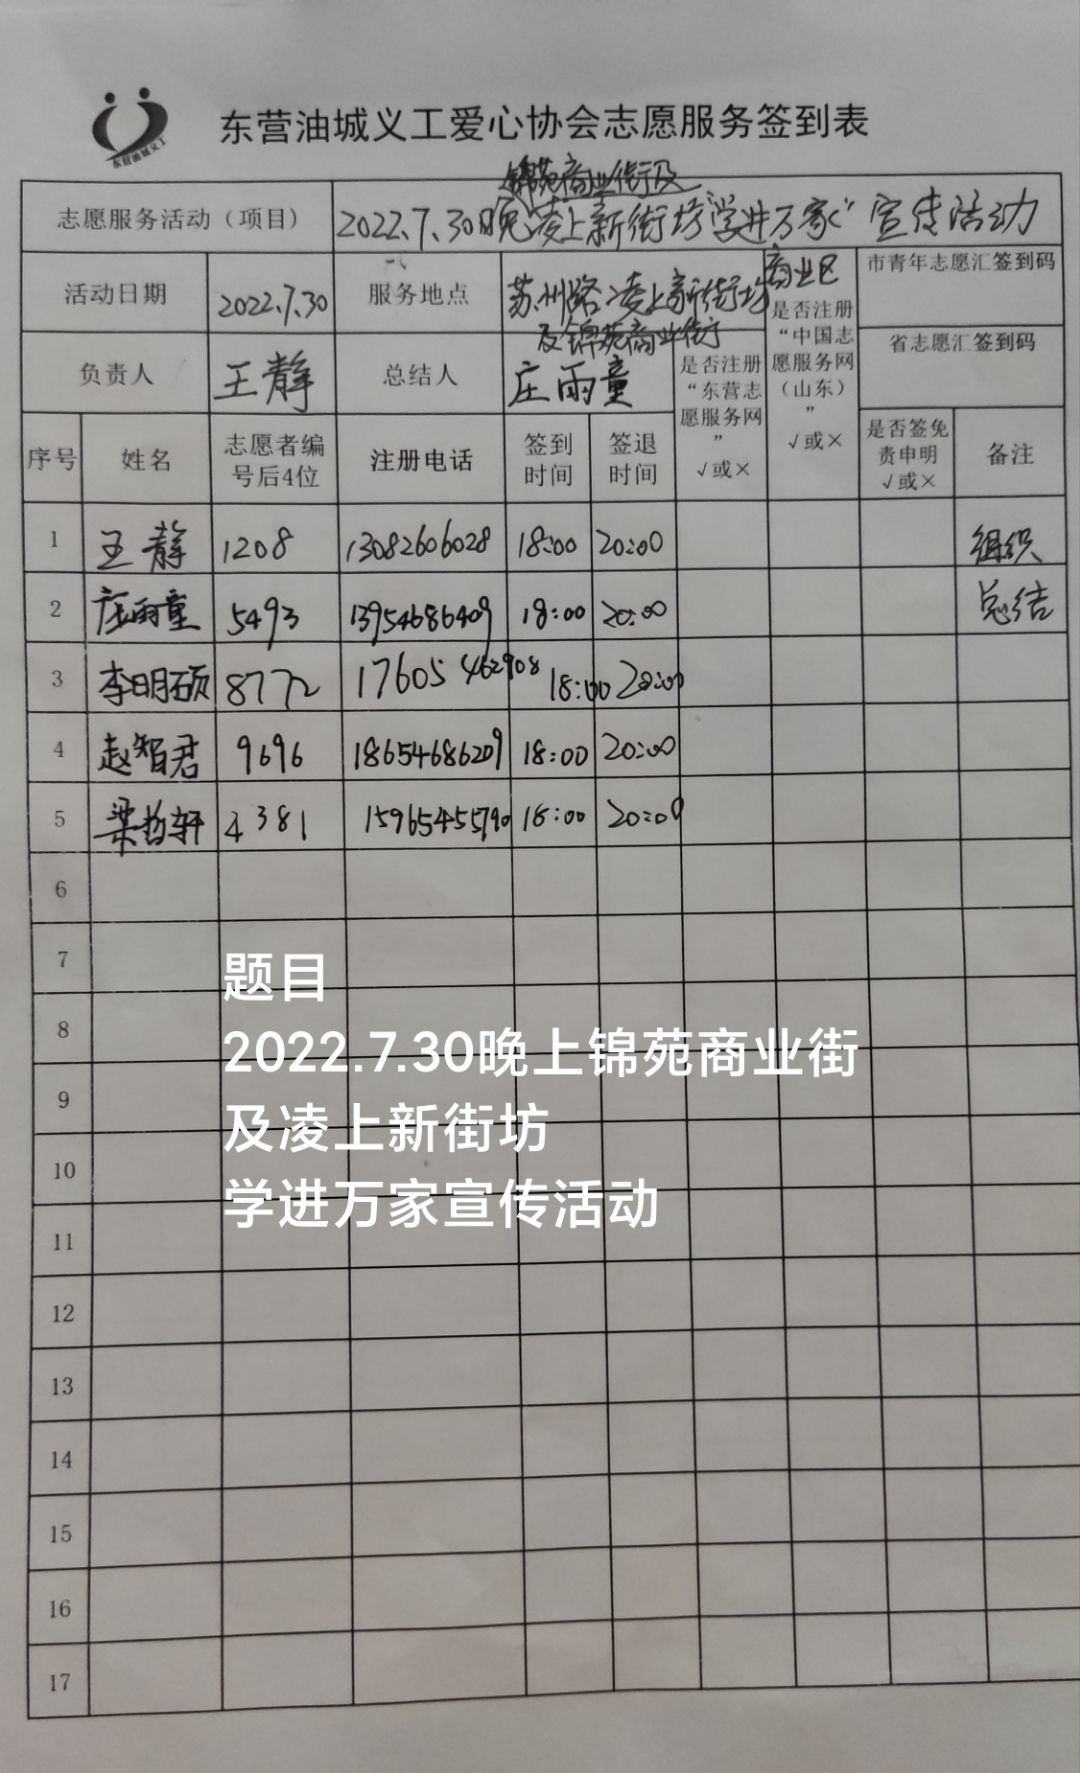 东营油城义工
东营油城义工爱心协会志愿服务签到表
锦苑商业街及
志愿服务活动（项目） 2022.7.30晚凌上新街坊“学进万家”宣传活动
活动日期 2022.7.30 服务地点 苏州路凌上新街坊商业区
及锦苑商业街
市青年志愿汇签到码
省志愿汇签到码
负责人 王静 总结人 庄雨童
是否注册“东营志愿服务网” √或×
是否注册“中国志愿服务网（山东）” √或×
序号 姓名 志愿者编号后4位 注册电话 签到时间 签退时间 是否签免责申明 √或× 备注
1 王静 1208 13082606028 18:00 20:00 组织
2 庄雨童 5493 13954686409 18:00 20:00 总结
3 李明硕 8772 17605462908 18:00 20:00
4 赵智君 9696 18654686209 18:00 20:00
5 梁哲轩 4381 15965455790 18:00 20:00
6
7
8
9
10
11
12
13
14
15
16
17
题目
2022.7.30晚上锦苑商业街
及凌上新街坊
学进万家宣传活动